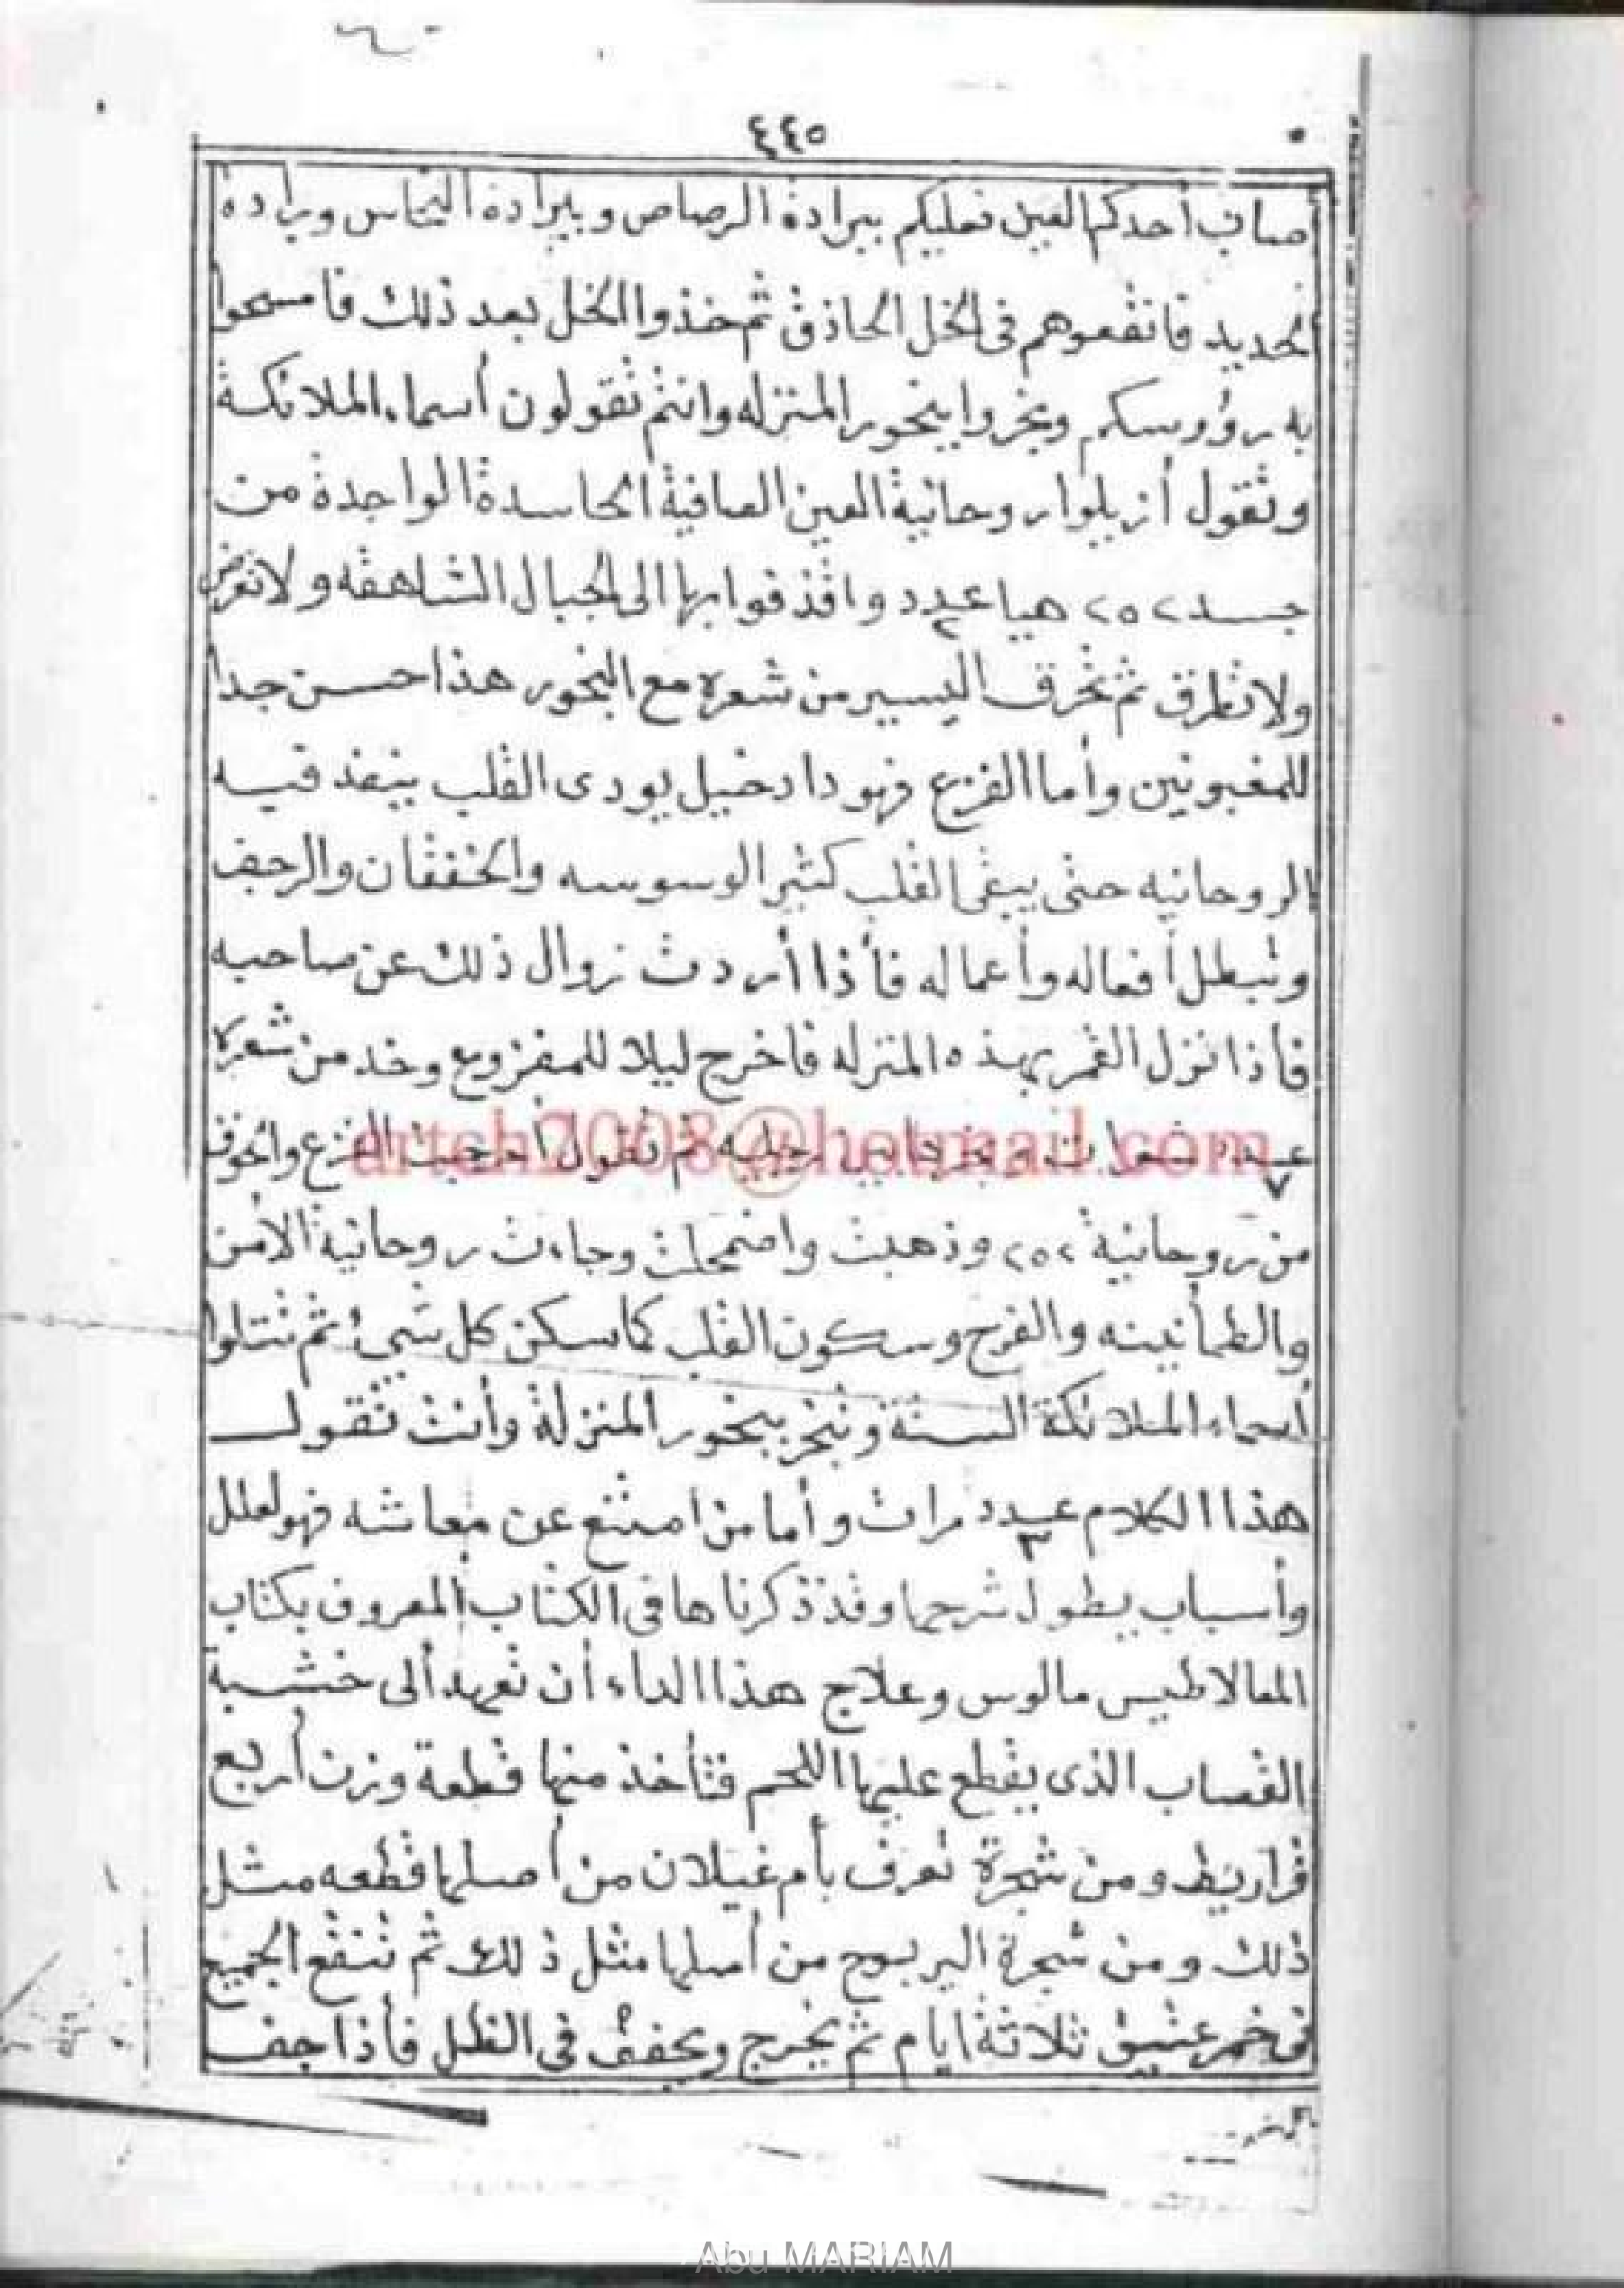 ٤٤٥
صاب أحدكم العين فعليكم ببرادة الرصاص وببرادة النحاس وبرادة
الحديد فانقعوهم فى الخل الحاذق ثم خذوا الخل بعد ذلك فامسحوا
به رؤوسكم وبخروا ببخور المنزله وانتم تقولون أسماء الملائكة
وتقول أزيلوا روحانية العين العافية الحاسدة الواجدة من
جسد ٢٥٢ هيا عدد ٢ واقذفوا بها الى الجبال الشاهقه ولا تعرض
ولا تطرق ثم تحرق اليسير من شعره مع البخور هذا حسن جدا
للمغبونين وأما الفزع فهو دا دخيل يودى القلب ينفذ فيه
الروحانيه حتى يبقى القلب كثير الوسوسه والخفقان والرجف
وتبطل أفعاله وأعماله فأذا أردت زوال ذلك عن صاحبه
فأذا نزل القمر بهذه المنزله فاخرج ليلا للمفزوع وخد من شعره
عدد ٧ شعرات وبخر بها بين رجليه ثم تقول أخرجت الفزع والخوف
arteh2008@hotmail.com
من روحانية ٢٥٢ وذهبت واضمحلت وجاءت روحانية الأمن
والطمأنينه والفرج وسكون القلب كما سكن كل شىء ثم تتلوا
أسماء الملائكة الستة وتبخر ببخور المنزلة وأنت تقول
هذا الكلام عدد ٣ مرات وأما من امتنع عن معاشه فهو لعلل
وأسباب يطول شرحها وقذ ذكرناها فى الكتاب المعروف بكتاب
المعالاطيس مالوس وعلاج هذا الداء أن تعهد ألى خشبة
القصاب الذى يقطع عليها اللحم فتأخذ منها قطعة وزن أربع
قراريط ومن شجرة تعرف بأم غيلان من أصلها قطعه مثل
ذلك ومن شجرة اليربوح من أصلها مثل ذلك ثم تنقع الجميع
فى خمر عتيق ثلاثة ايام ثم يخرج ويجفف فى الظل فأذا جف
Abu MARIAM